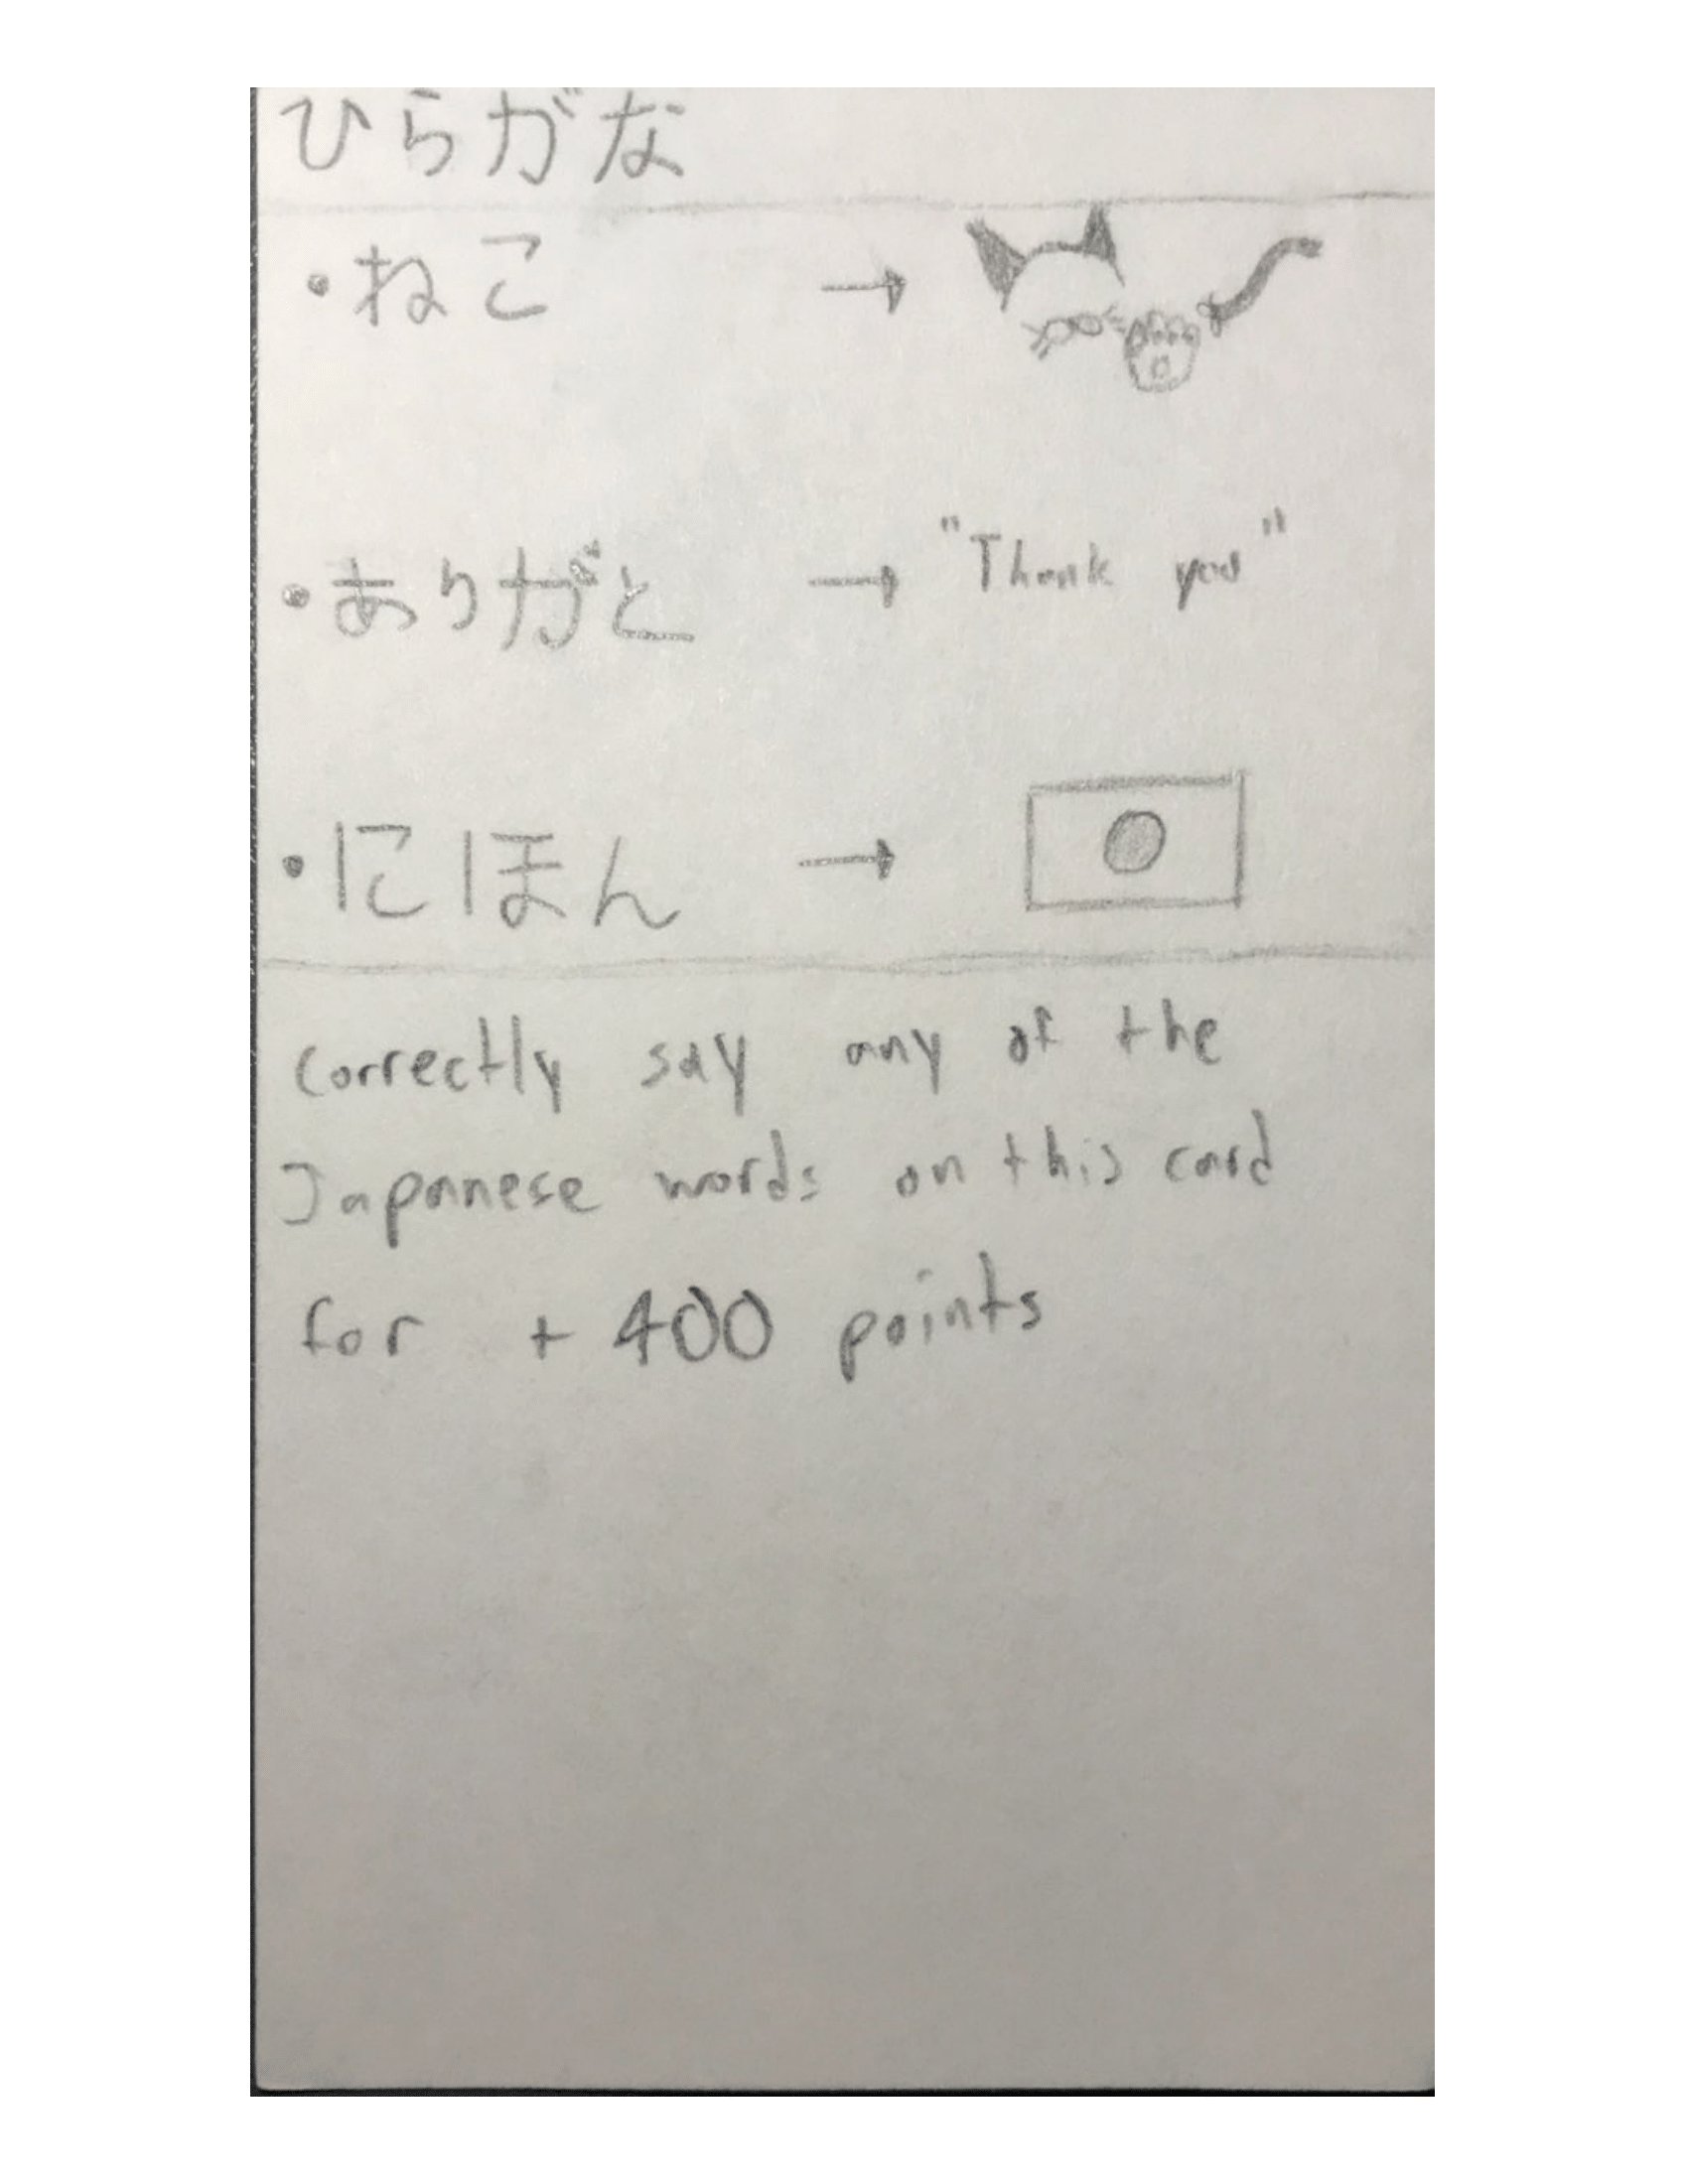 ひらがな
・ねこ →
・ありがと → "Thank you"
・にほん →
Correctly say any of the
Japanese words on this card
for + 400 points